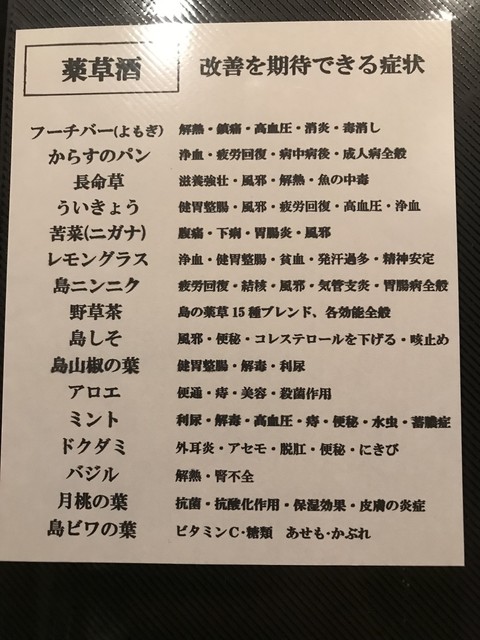 薬草酒 改善を期待できる症状
フーチバー(よもぎ) 解熱・鎮痛・高血圧・消炎・毒消し
からすのパン 浄血・疲労回復・病中病後・成人病全般
長命草 滋養強壮・風邪・解熱・魚の中毒
ういきょう 健胃整腸・風邪・疲労回復・高血圧・浄血
苦菜(ニガナ) 腹痛・下痢・胃腸炎・風邪
レモングラス 浄血・健胃整腸・貧血・発汗過多・精神安定
島ニンニク 疲労回復・結核・風邪・気管支炎・胃腸病全般
野草茶 島の薬草15種ブレンド、各効能全般
島しそ 風邪・便秘・コレステロールを下げる・咳止め
島山椒の葉 健胃整腸・解毒・利尿
アロエ 便通・痔・美容・殺菌作用
ミント 利尿・解毒・高血圧・痔・便秘・水虫・蓄膿症
ドクダミ 外耳炎・アセモ・脱肛・便秘・にきび
バジル 解熱・腎不全
月桃の葉 抗菌・抗酸化作用・保湿効果・皮膚の炎症
島ビワの葉 ビタミンC・糖類 あせも・かぶれ